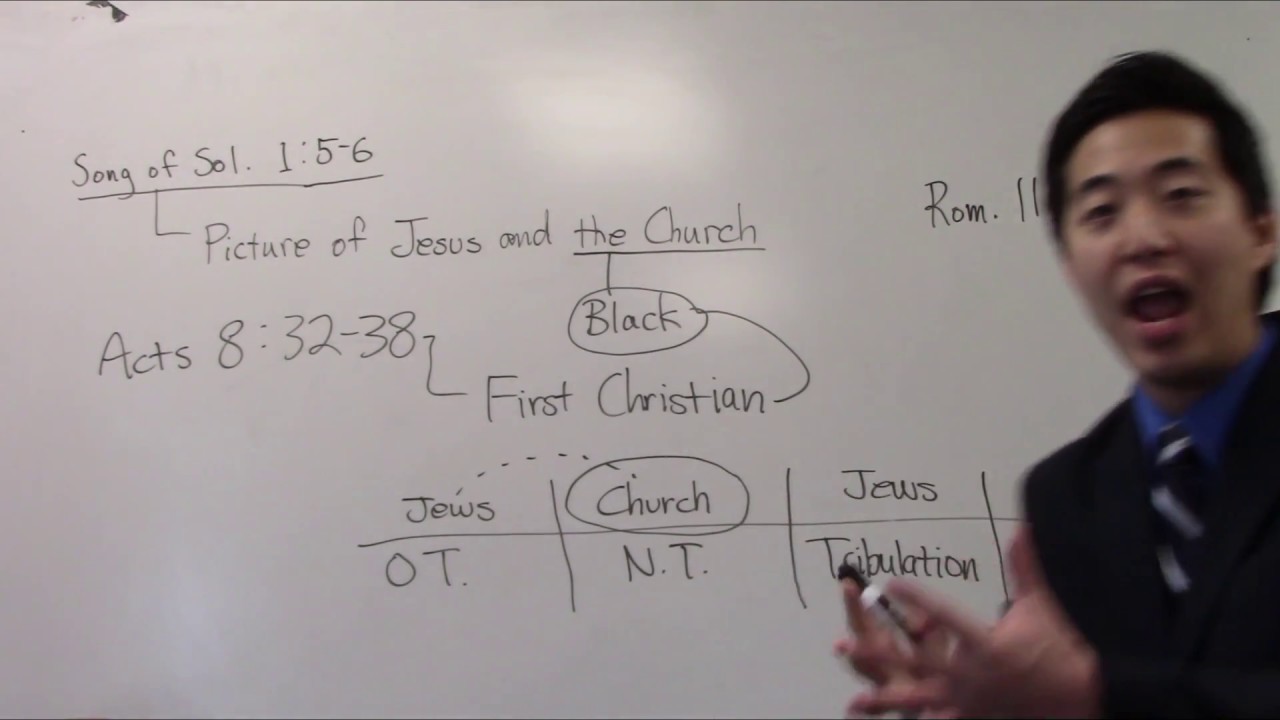 Song of Sol. 1:5-6
Picture of Jesus and the Church
Rom. 11
Black
Acts 8:32-38
First Christian
Jews Church Jews
O T. N.T. Tribulation